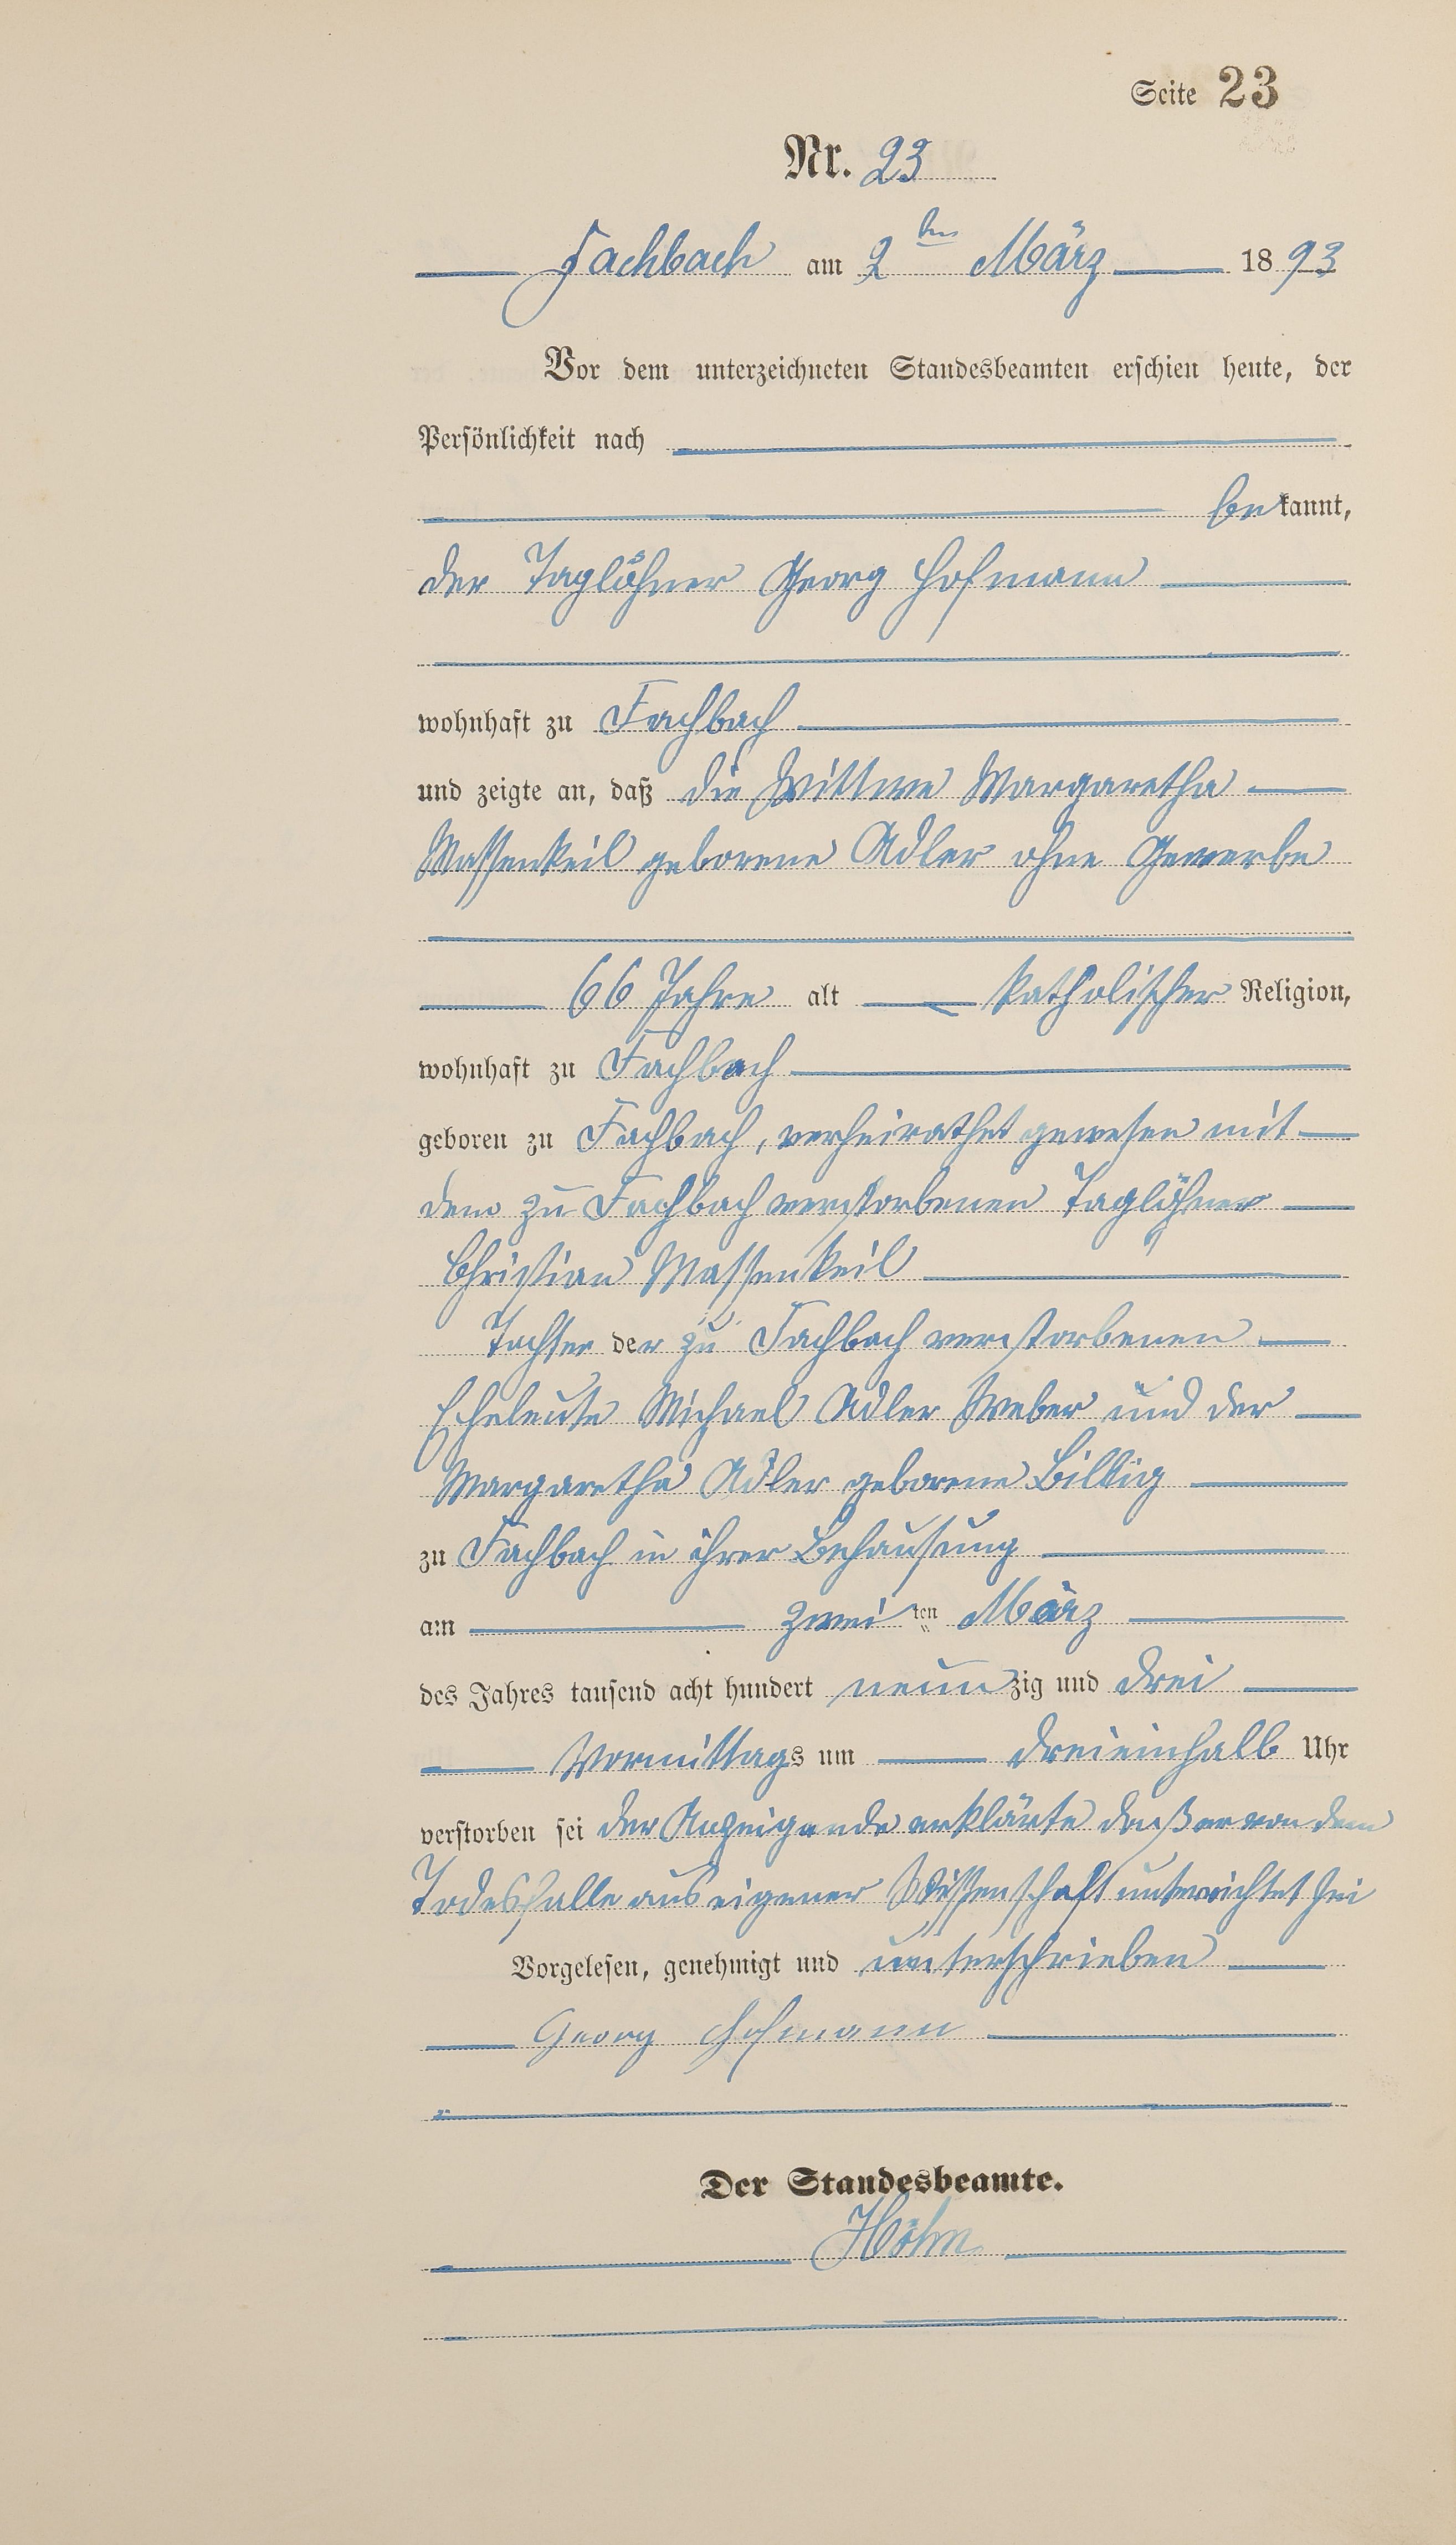 Seite 23
Nr. 23
Fachbach am 2ten März 1893
Vor dem unterzeichneten Standesbeamten erschien heute, der
Persönlichkeit nach
bekannt,
der Taglöhner Georg Hofmann
wohnhaft zu Fachbach
und zeigte an, daß die Wittwe Margaretha
Massenkeil geborene Adler ohne Gewerbe
66 Jahre alt katholischer Religion,
wohnhaft zu Fachbach
geboren zu Fachbach, verheirathet gewesen mit
dem zu Fachbach verstorbenen Taglöhner
Christian Massenkeil
Tochter der zu Fachbach verstorbenen
Eheleute Michael Adler Weber und der
Margaretha Adler geborene Billig
zu Fachbach in ihrer Behausung
am zweiten März
des Jahres tausend acht hundert neunzig und drei
Vormittags um dreieinhalb Uhr
verstorben sei der Anzeigende erklärte daß er von dem
Todesfalle aus eigener Wissenschaft unterrichtet sei
Vorgelesen, genehmigt und unterschrieben
Georg Hofmann
Der Standesbeamte.
Höhn